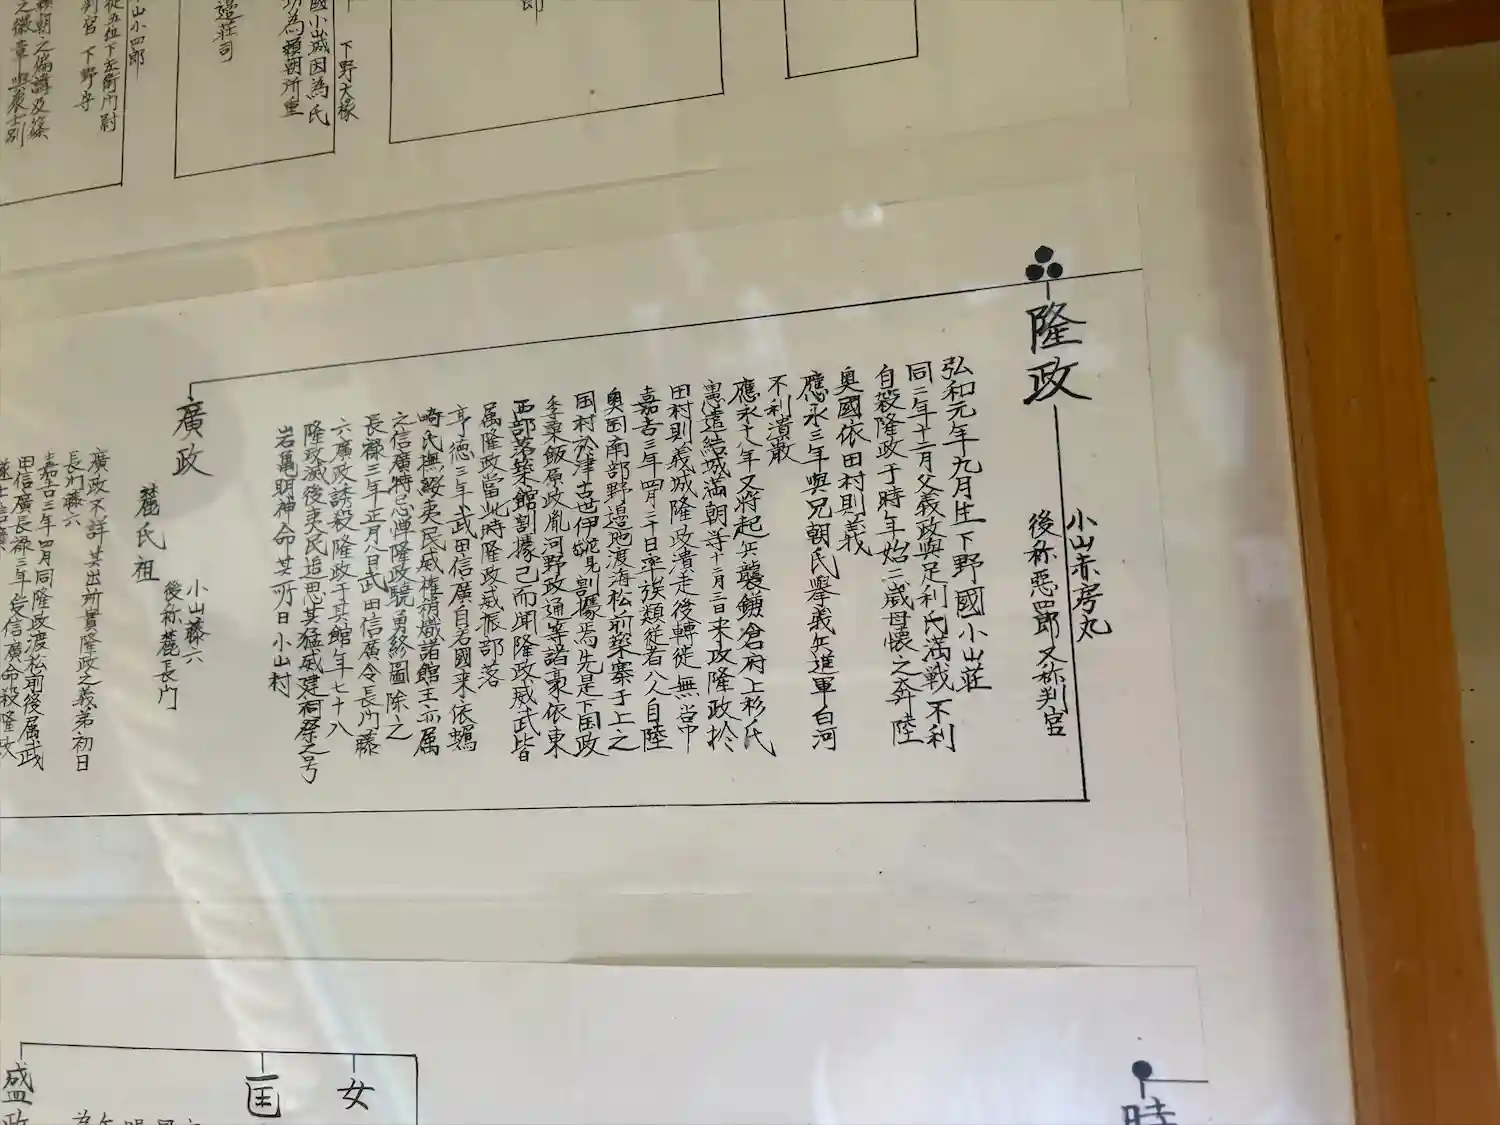 下野大掾
國小山城因為氏
功為頼朝所重
邊莊司
山小四郎
從五位下左衛門尉
判官 下野守
頼朝之偏諱及篠
之徽章與裏士別
隆政
小山赤房丸
後称惡四郎又称判官
弘和元年九月生下野國小山莊
同二年十二月父義政與足利氏満戦不利
自殺隆政于時年始二歳母懐之奔陸
奥國依田村則義
應永三年與兄朝氏擧義兵進軍白河
不利潰散
應永十八年又将起兵襲鎌倉府上杉氏
憲遠結城満朝等十二月三日来攻隆政於
田村則義城隆政潰走後轉徙無出中
嘉吉三年四月二十日率族類従者八人自陸
奥国南部野邊地渡海松前築寨于上之
国村於津古世伊能見割據焉先是下国政
季粟飯原政胤河野政通等諸豪依東
西部落築館割據已而聞隆政威武皆
属隆政當此時隆政威振部落
亨徳三年武田信廣自若國来依蠣
崎氏撫綏夷民威權稍熾諸館主亦属
之信廣特忌憚隆政驍勇終圖除之
長禄三年正月八日武田信廣令長門藤
六廣政誘殺隆政于其館年七十八
隆政滅後夷民追思其猛威建祠祭之号
岩亀明神命其所曰小山村
廣政
小山藤六
後称蘢長門
蘢氏祖
廣政不詳其出所實隆政之義弟初曰
長門藤六
嘉吉三年四月同隆政渡松前後属武
田信廣長禄三年受信廣命殺隆政
女
匡
盛政
時